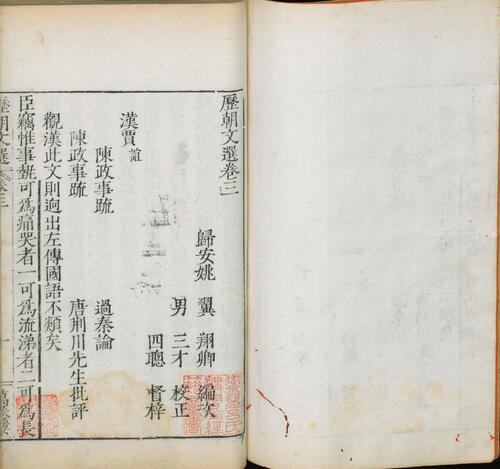 歷朝文選卷三
歸安姚 翼 翔卿 編次
男 三才 校正
四聰 督梓
漢賈誼
陳政事疏 過秦論
陳政事疏 唐荊川先生批評
觀漢此文則逈出左傳國語不類矣
臣竊惟事埶可爲痛哭者一可爲流涕者二可爲長
歷朝文選 卷三 一